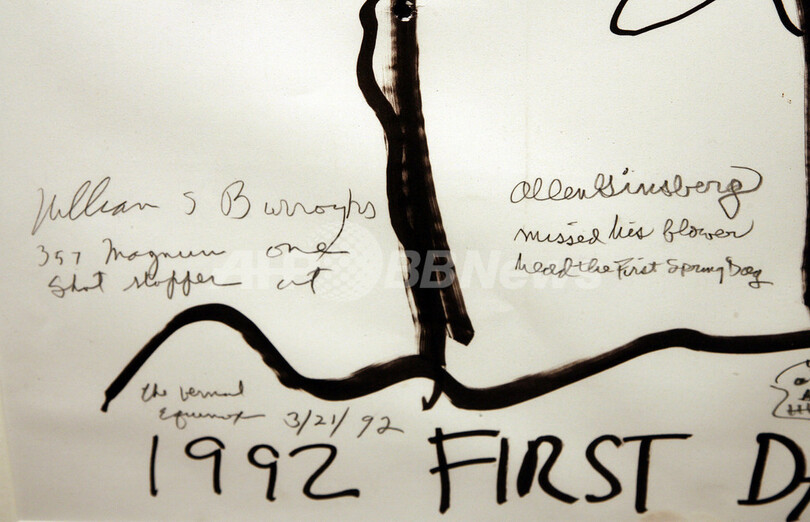 William S Burroughs
357 Magnum one
Shot stopper art
Allen Ginsberg
missed his flower
head the First Spring Day
AFP BBNews
the vernal
Equinox 3/21/92
1992 FIRST DA